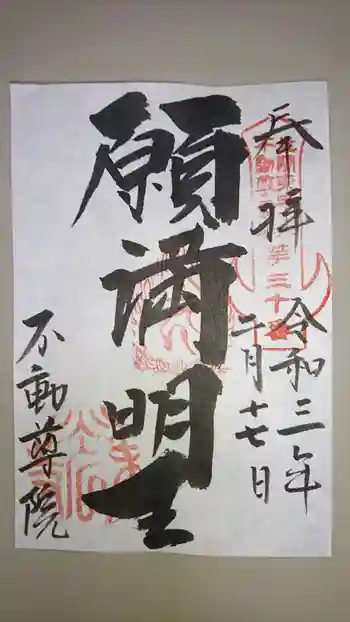 奉拝
令和三年
二月十七日
願満明王
不動尊院